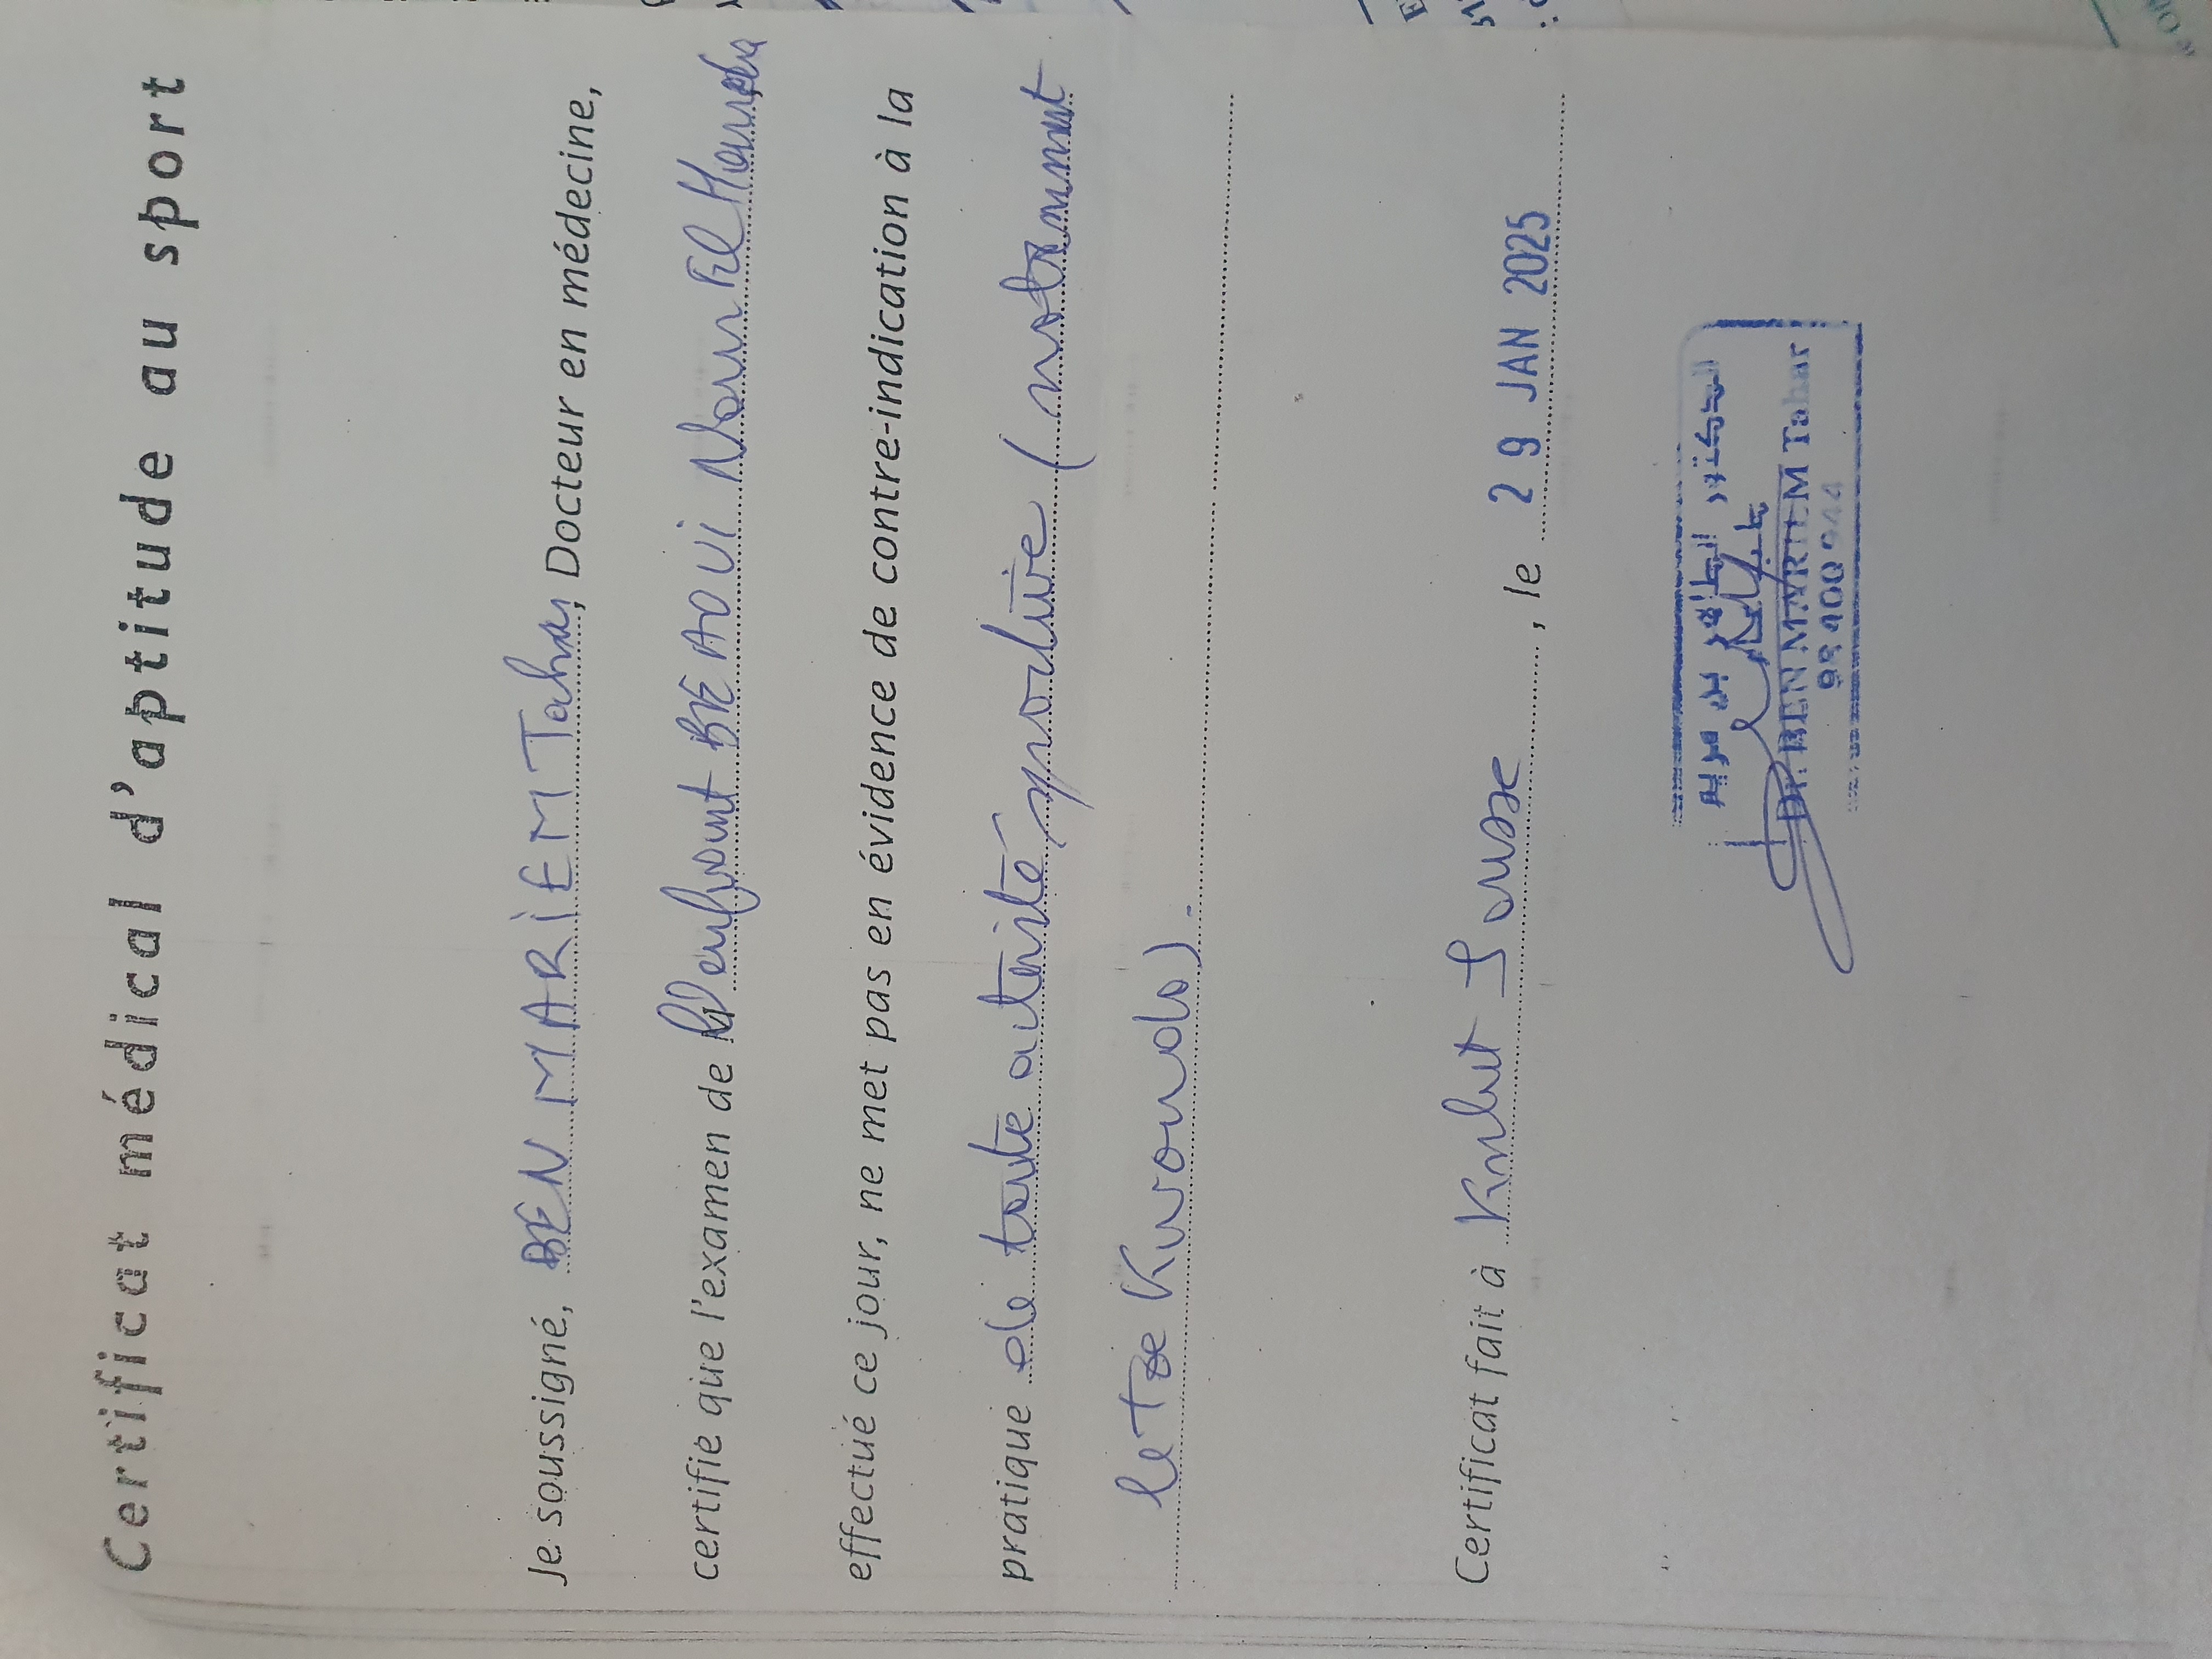 Certificat médical d'aptitude au sport
Je soussigné, BEN MARIEM Tahar, Docteur en médecine,
certifie que l'examen de l'enfant BEAOUI Nour El Houda
effectué ce jour, ne met pas en évidence de contre-indication à la
pratique de toute activité sportive (notamment
le Tae Kwondo).
Certificat fait à Ksibet Sousse, le 29 JAN 2025
الدكتور الطاهر بن مريم
Dr. BEN MARIEM Tahar